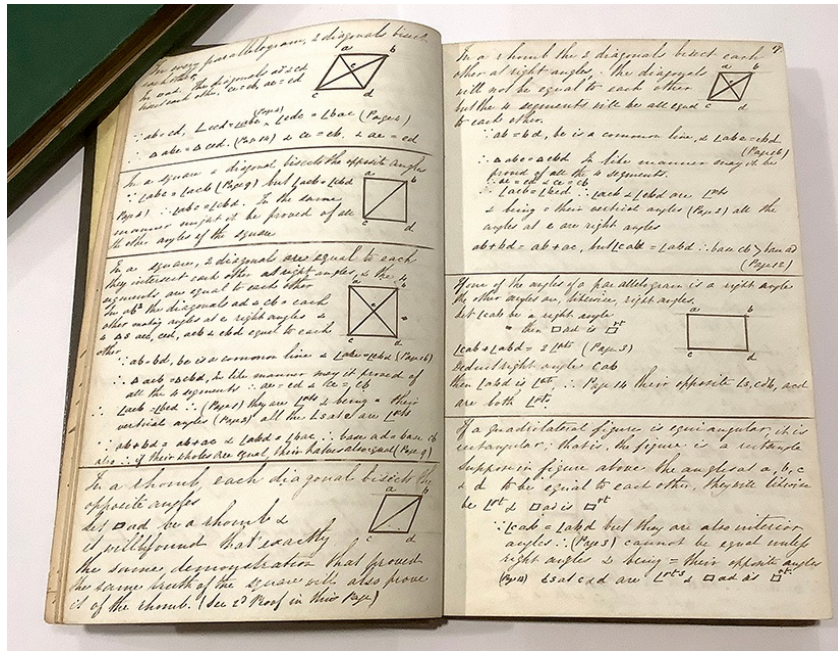 In every parallelogram, 2 diagonals bisect
each other,
In □ad, the diagonals ad & cd
bisect each other, ce = eb, ae = ed
a b
e
c d
∵ ab = cd, ∠ecd = ∠abe (Page 2) & ∠edc = ∠bac (Page 2)
∴ △ abe = △ ecd. (Page 12) & ce = eb, & ae = ed
In a square a diagonal bisects the opposite angles
∵ ∠abc = ∠acb (Page 9) but ∠acb = ∠cbd
Page 2) ∴ ∠abc = ∠cbd. In the same
manner might it be proved of all
the other angles of the square
a b
c d
In a square, 2 diagonals are equal to each
they intersect each other at right angles, & the 4
segments are equal to each other
In ab² the diagonals ad & cb = each
other making angles at e right angles &
4 △s are, ced, aeb & ebd equal to each
other
a b
e
c d
∵ ab = bd, be is a common line & ∠abe = ∠ebd (Page 16)
∴ △ aeb = △ebd, In like manner may it proved of
all the 4 segments ∴ ae = ed & ce = eb
∵ ∠aeb = ∠bed ∴ (Page 1) they are ∠rts & being = their
vertical angles (Page 2) all the ∠s at e are ∠rts
∵ ab + bd = ab + ac & ∠abd = ∠bac ∴ base ad = base cb
also ∴ if their wholes are equal, their halves also equal (Page 9)
In a rhomb, each diagonal bisects the
opposite angles
Let □ad be a rhomb &
it will found that exactly
the same demonstration that proved
the same truth of the square will also prove
it of the rhomb. (See 2d Proof in this Page)
a b
c d
7
In a rhomb the 2 diagonals bisect each
other at right angles, the diagonals
will not be equal to each other
but the 4 segments will be all equal
to each other.
a b
e
c d
∵ ab = bd, be is a common line, & ∠abe = ebd
(Page 16)
∴ △ abe = △ ebd In like manner may it be
proved of all the 4 segments.
∴ ae = ed & ce = eb
∵ ∠aeb = ∠bed ∴ ∠aeb & ∠ebd are ∠rts
& being = their vertical angles (Page 2) all the
angles at e are right angles
ab + bd = ab + ac, but ∠cab = ∠abd ∴ base cb > base ad
(Page 12)
If one of the angles of a parallelogram is a right angle
the other angles are, likewise, right angles.
Let ∠cab be a right angle
then □ad is □rt
∠cab + ∠abd = 2 ∠rts (Page 3)
Deduct right angle cab
then ∠abd is ∠rt, ∴ Page 14 their opposite ∠s, cdb, acd
are both ∠rt.
a b
c d
If a quadrilateral figure is equiangular, it is
rectangular; that is, the figure is a rectangle
Suppose in figure above the angles at a, b, c
& d to be equal to each other, they will likewise
be ∠rt & □ad is □rt
∵ ∠cab = ∠abd but they are also interior
angles ∴ (Page 3) cannot be equal unless
right angles & being = their opposite angles
(Page 14) ∠s at c & d are ∠rts & □ad is □rt.